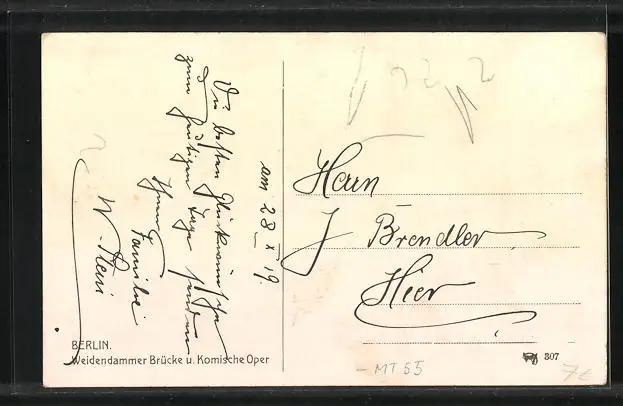 am 28 X 19.
Die besten Glückwünsche
zum heutigen Tage senden
Ihnen
Familie
W.
Herrn
J Brendler
Hier
BERLIN.
Weidendammer Brücke u. Komische Oper
307
MT 55
7€